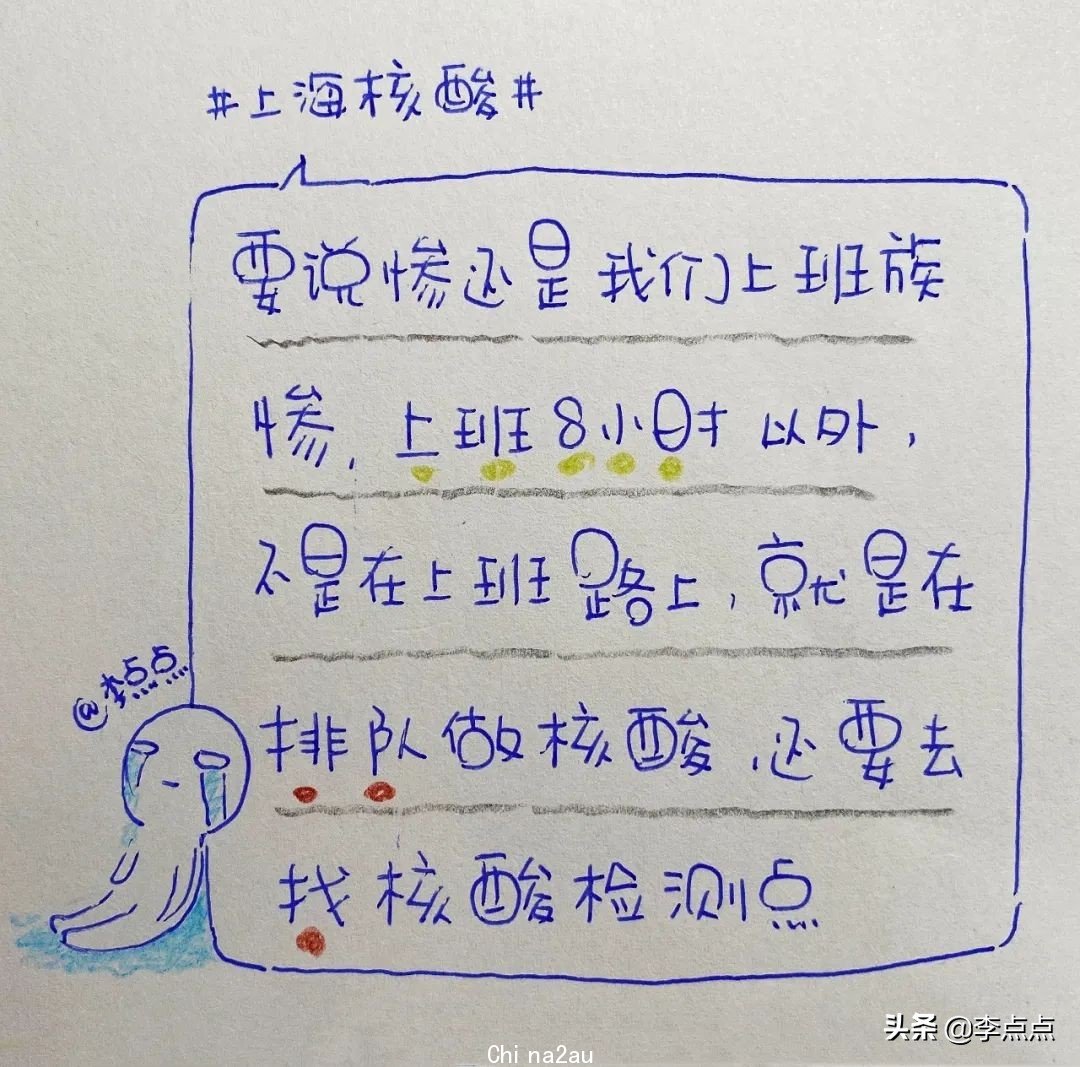 #上海核酸#
要说惨还是我们上班族
惨，上班8小时以外，
不是在上班路上，就是在
@李点点
排队做核酸，还要去
找核酸检测点
头条 @李点点
China2au